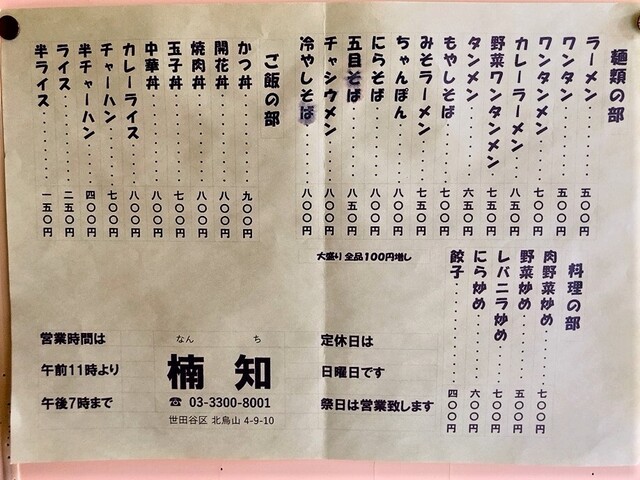 麺類の部
ラーメン・・・・・・・五〇〇円
ワンタン・・・・・・・五〇〇円
ワンタンメン・・・・・七〇〇円
カレーラーメン・・・・八五〇円
野菜ワンタンメン・・・七五〇円
タンメン・・・・・・・六五〇円
もやしそば・・・・・・七五〇円
みそラーメン・・・・・七五〇円
ちゃんぽん・・・・・・八〇〇円
にらそば・・・・・・・八〇〇円
五目そば・・・・・・・八五〇円
チャシウメン・・・・・八〇〇円
冷やしそば・・・・・・八〇〇円
大盛り 全品100円増し
ご飯の部
かつ丼・・・・・・・・九〇〇円
開花丼・・・・・・・・八〇〇円
焼肉丼・・・・・・・・八〇〇円
玉子丼・・・・・・・・七〇〇円
中華丼・・・・・・・・八〇〇円
カレーライス・・・・・八〇〇円
チャーハン・・・・・・七〇〇円
半チャーハン・・・・・四〇〇円
ライス・・・・・・・・二五〇円
半ライス・・・・・・・一五〇円
料理の部
肉野菜炒め・・・・・七〇〇円
野菜炒め・・・・・・五〇〇円
レバニラ炒め・・・・七〇〇円
にら炒め・・・・・・六〇〇円
餃子・・・・・・・・四〇〇円
営業時間は
午前11時より
午後7時まで
なん ち
楠 知
☎ 03-3300-8001
世田谷区 北烏山 4-9-10
定休日は
日曜日です
祭日は営業致します